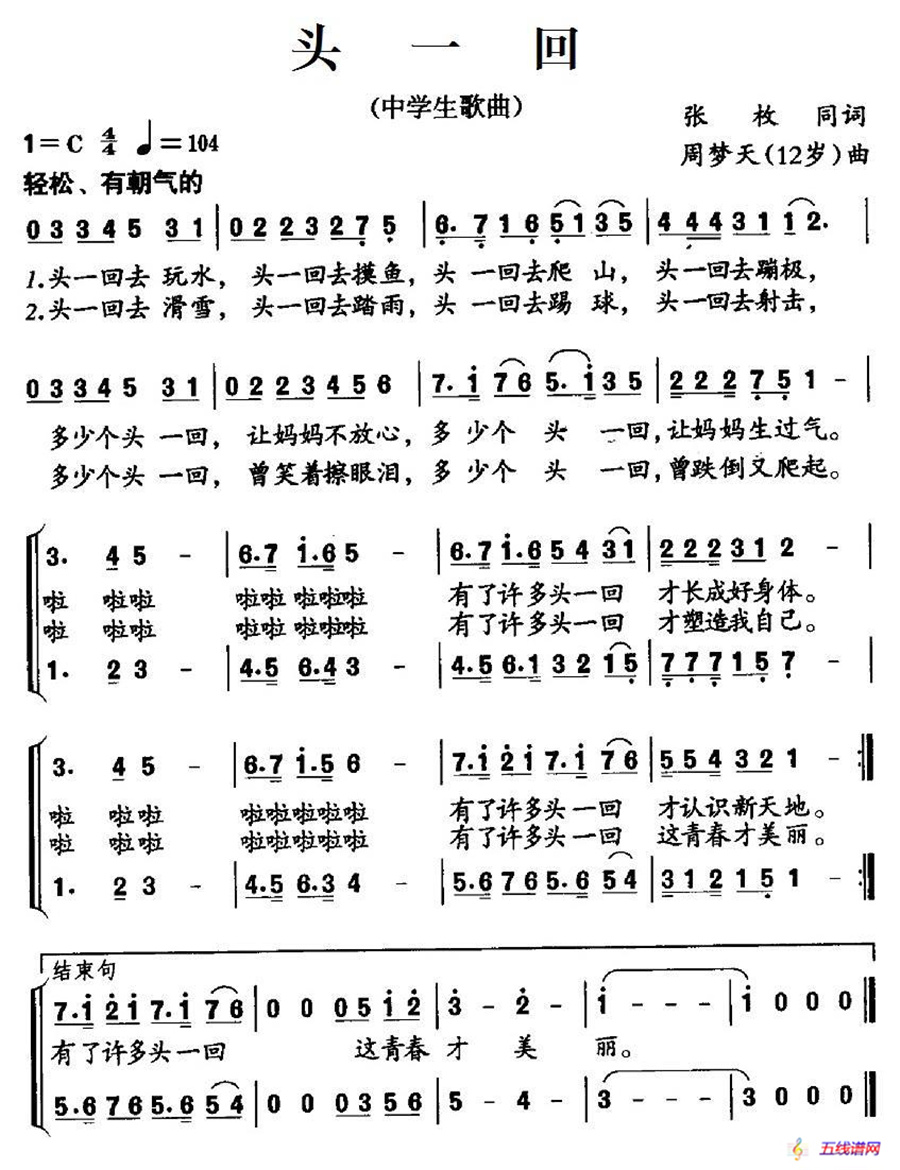 头 一 回
(中学生歌曲)
1=C 4/4 ♩=104
张 枚 同词
周梦天(12岁)曲
轻松、有朝气的
0 3 3 4 5 3 1 | 0 2 2 3 2 7 5 | 6. 7 1 6 5 1 3 5 | 4 4 4 3 1 1 2. |
1.头一回去 玩水, 头一回去摸鱼, 头 一回去爬 山, 头一回去蹦极,
2.头一回去 滑雪, 头一回去踏雨, 头 一回去踢 球, 头一回去射击,
0 3 3 4 5 3 1 | 0 2 2 3 4 5 6 | 7. i 7 6 5. i 3 5 | 2 2 2 7 5 1 - |
多少个头 一回, 让妈妈不放心, 多 少个 头 一回, 让妈妈生过气。
多少个头 一回, 曾笑着擦眼泪, 多 少个 头 一回, 曾跌倒又爬起。
3. 4 5 - | 6.7 i.6 5 - | 6.7 i.6 5 4 3 1 | 2 2 2 3 1 2 - |
啦 啦啦 啦啦 啦啦啦 有了许多头一回 才长成好身体。
啦 啦啦 啦啦 啦啦啦 有了许多头一回 才塑造我自己。
1. 2 3 - | 4.5 6.4 3 - | 4.5 6.1 3 2 1 5 | 7 7 7 1 5 7 - |
3. 4 5 - | 6.7 i.5 6 - | 7.i 2 i 7.i 7 6 | 5 5 4 3 2 1 - :|
啦 啦啦 啦啦啦啦啦 有了许多头一回 才认识新天地。
啦 啦啦 啦啦啦啦啦 有了许多头一回 这青春才美丽。
1. 2 3 - | 4.5 6.3 4 - | 5.6 7 6 5.6 5 4 | 3 1 2 1 5 1 - :|
结束句
7.i 2 i 7.i 7 6 | 0 0 0 5 i 2 | 3 - 2 - | i - - - | i 0 0 0 ‖
有了许多头一回 这青春 才 美 丽。
5.6 7 6 5.6 5 4 | 0 0 0 3 5 6 | 5 - 4 - | 3 - - - | 3 0 0 0 ‖
五线谱网
www.wuxianpu.com